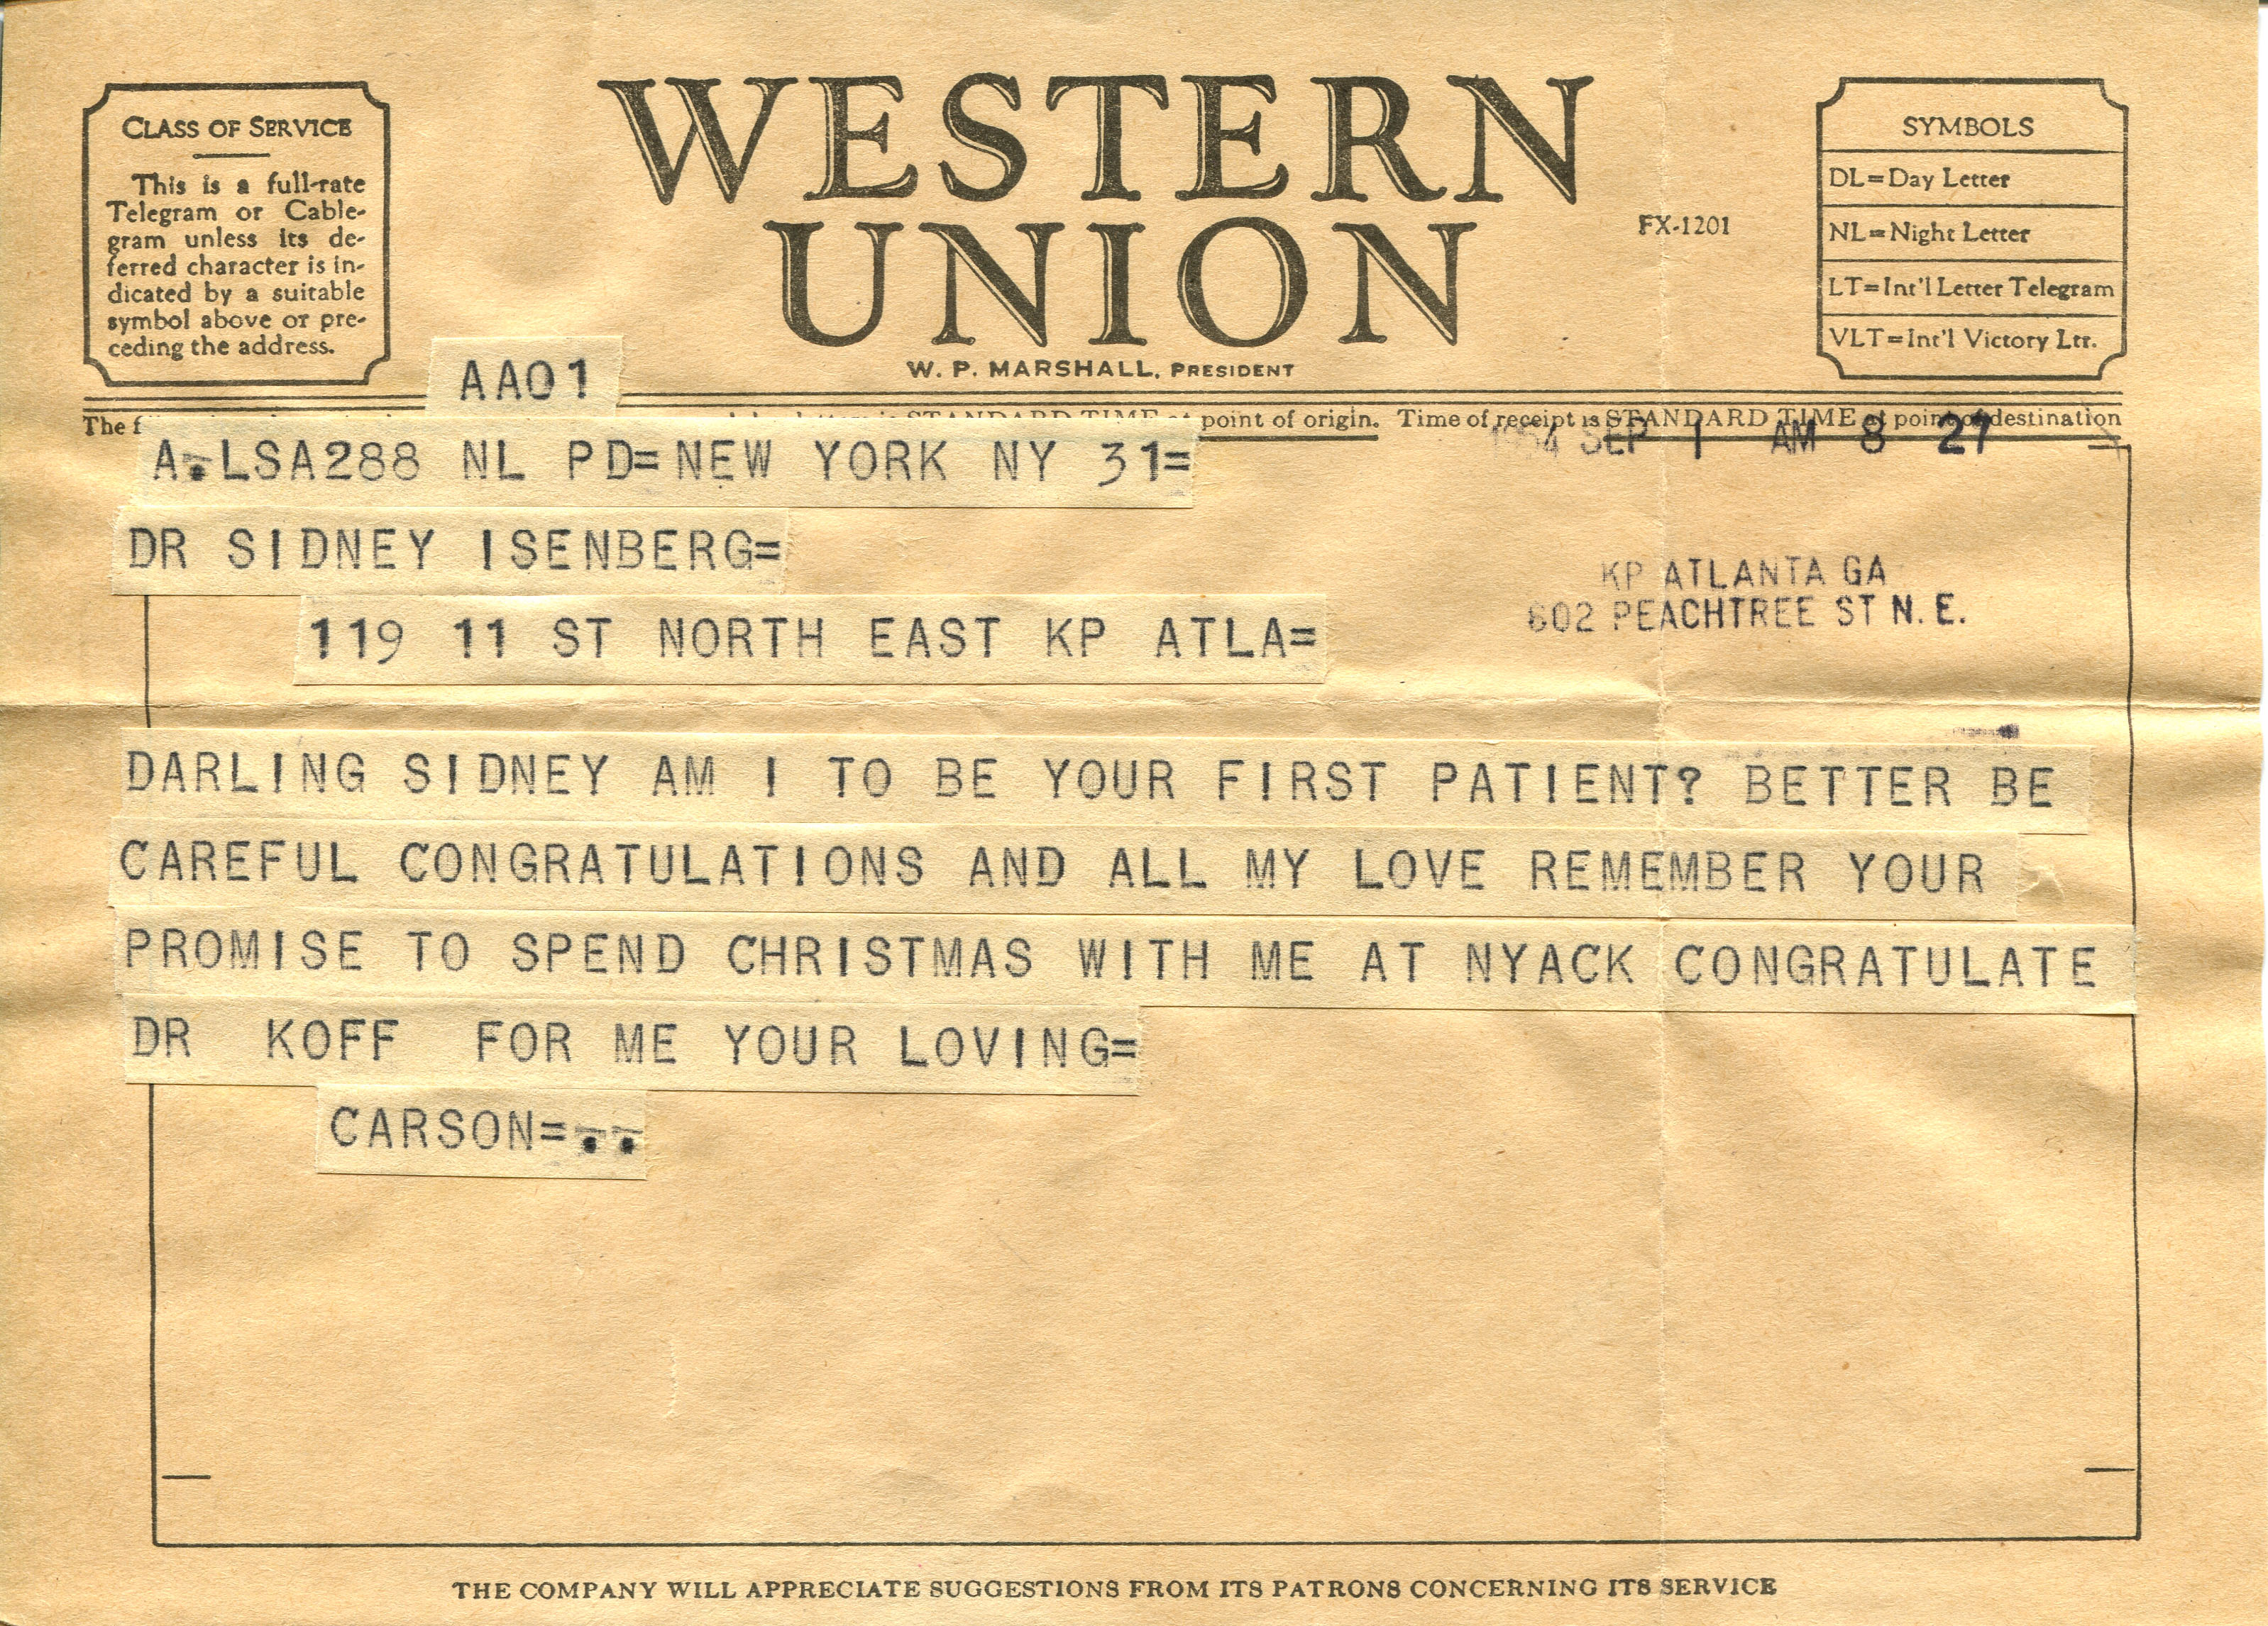 CLASS OF SERVICE
This is a full-rate
Telegram or Cable-
gram unless its de-
ferred character is in-
dicated by a suitable
symbol above or pre-
ceding the address.
WESTERN
UNION
W. P. MARSHALL, PRESIDENT
FX-1201
SYMBOLS
DL=Day Letter
NL=Night Letter
LT=Int'l Letter Telegram
VLT=Int'l Victory Ltr.
AA01
The STANDARD TIME at point of origin. Time of receipt is STANDARD TIME at point of destination
1954 SEP 1 AM 8 27
A.LSA288 NL PD=NEW YORK NY 31=
DR SIDNEY ISENBERG=
119 11 ST NORTH EAST KP ATLA=
KP ATLANTA GA
602 PEACHTREE ST N. E.
DARLING SIDNEY AM I TO BE YOUR FIRST PATIENT? BETTER BE
CAREFUL CONGRATULATIONS AND ALL MY LOVE REMEMBER YOUR
PROMISE TO SPEND CHRISTMAS WITH ME AT NYACK CONGRATULATE
DR KOFF FOR ME YOUR LOVING=
CARSON=..
THE COMPANY WILL APPRECIATE SUGGESTIONS FROM ITS PATRONS CONCERNING ITS SERVICE